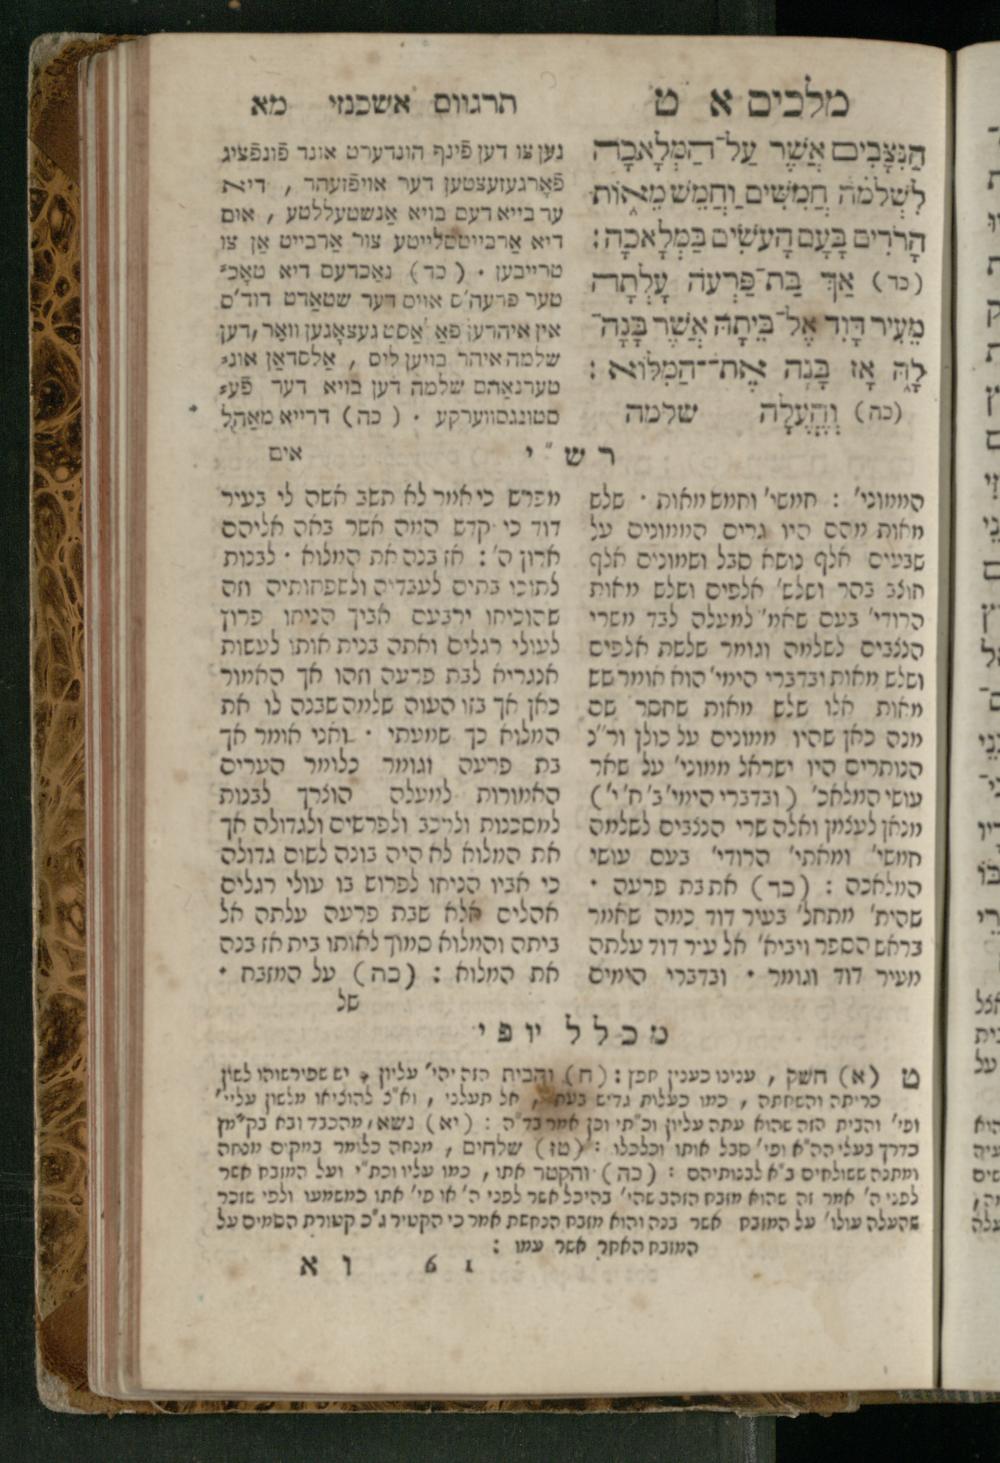 מלכים א ט
הַנִּצָּבִים אֲשֶׁר עַל־הַמְּלָאכָה
לִשְׁלֹמֹה חֲמִשִּׁים וַחֲמֵשׁ מֵאוֹת
הָרֹדִים בָּעָם הָעֹשִׂים בַּמְּלָאכָה:
(כד) אַךְ בַּת־פַּרְעֹה עָלְתָה
מֵעִיר דָּוִד אֶל־בֵּיתָהּ אֲשֶׁר בָּנָה־
לָהּ אָז בָּנָה אֶת־הַמִּלּוֹא:
(כה) וְהֶעֱלָה שלמה
תרגום אשכנזי מא
געןצו דען פֿינף הונדערט אונד פֿונפֿציג
פֿאָרגעזעצטען דער אויפֿזעהר, דיא
ער בייא דעם בויא אַנשטעללטע, אום
דיא אַרבייטסלייטע צור אַרבייט אַן צו
טרייבען. (כד) נאַכדעם דיא טאָכ־
טער פרעה'ס אויס דער שטאַדט דוד'ס
אין איהרען פאַלאַסט געצאָגען וואַר, דען
שלמה איהר בויען ליס, אַלסדאַן אונ־
טערנאַהם שלמה דען בויא דער פֿע־
סטונגסווערקע. (כה) דרייא מאַהל
אים
רש"י
הממוני': חמשי' וחמש מאות. שלש
מאות מהם היו גרים הממונים על
שבעים אלף נושא סבל ושמונים אלף
חוצב בהר ושלש' אלפים ושלש מאות
הרודי' בעם שאמ' למעלה לבד משרי
הנצבים לשלמה וגומר שלשת אלפים
ושלש מאות ובדברי הימי' הוא אומר שש
מאות אלו שלש מאות שחסר שם
מנה כאן שהיו ממונים על כולן ור"נ
הנותרים היו ישראל ממוני' על שאר
עושי המלאכ' (ובדברי הימי' ב' ח' י')
מנאן לעצמן ואלה שרי הנצבים לשלמה
חמשי' ומאתי' הרודי' בעם עושי
המלאכה: (כד) את בת פרעה.
שהית' מתחל' בעיר דוד כמה שאמר
בראש הספר ויביא' אל עיר דוד עלתה
מעיר דוד וגומר. ובדברי הימים
מפרש כי אמר לא תשב אשה לי בעיר
דוד כי קדש המה אשר באה אליהם
ארון ה': אז בנה את המלוא. לבנות
לתוכו בתים לעבדיה ולשפחותיה וזה
שהוכיחו ירבעם אביך הניחו פרוץ
לעולי רגלים ואתה בנית אותו לעשות
אנגריא לבת פרעה וזהו אך האמור
כאן אך בזו העוה שלמה שבנה לו את
המלוא כך שמעתי. ואני אומר אך
בת פרעה וגומר כלומר הערים
האמורות למעלה הוצרך לבנות
למסכנות ולרכב ולפרשים ולגדולה אך
את המלוא לא היה בונה לשום גדולה
כי אביו הניחו לפרוש בו עולי רגלים
אהלים אלא שבת פרעה עלתה אל
ביתה והמלוא סמוך לאותו בית אז בנה
את המלוא: (כה) על המזבח.
של
מכלל יופי
ט (א) חשק, ענינו כענין חפץ: (ח) והבית הזה יהי' עליון. יש שפירשוהו לשון
כריתה והשחתה, כמו כעלות גדיש בעתו, אל תעלני, וא"כ להוציאו מלשון עליי'
ופי' והבית הזה שהוא עתה עליון וכ"תי וכן אמר בד"ה: (יא) נשא, מהכבד ובא בקמץ
כדרך בעלי הה"א ופי' סבל אותו וכלכלו: (טז) שלחים, מנחה כלומר במקום מנחה
ומתנה ששולחים ב"א לבנותיהם: (כה) והקטר אתו, כמו עליו וכת"י ועל המזבח אשר
לפני ה' אמר זה שהוא מזבח הזהב שהי' בהיכל אשר לפני ה' או פי' אתו כמשמעו ולפי שזכר
שהעלה עולו' על המזבח אשר בנה והוא מזבח הנחשת אמר כי הקטיר ג"כ קטורת הסמים על
המזבח האחר אשר עמו:
וא 6 1